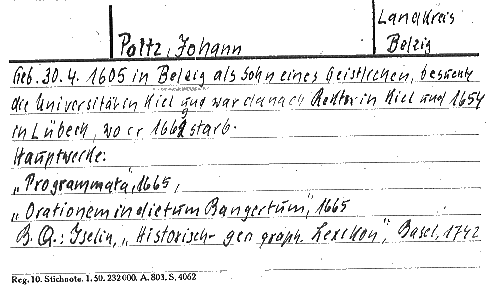 Landkreis
Poltz, Johann
Belzig
Geb. 30. 4. 1605 in Belzig als Sohn eines Geistlichen, besuchte
die Universität in Kiel und war danach Rektor in Kiel und 1654
in Lübeck, wo er starb.
Hauptwerke:
„Programmata", 1665,
„Orationem in dictum Bangertum", 1665
B. Q.: Iselin, „Historisch-geograph. Lexikon", Basel, 1742
Reg. 10. Stichnote. 1. 50. 232000. A. 803. S. 4062